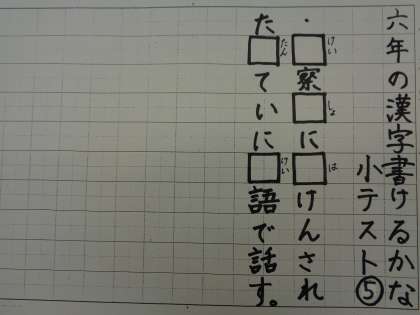 六年の漢字書けるかな
小テスト⑤
・□けい察□しょに□はけんされ
た□たんていに□けい語で話す。